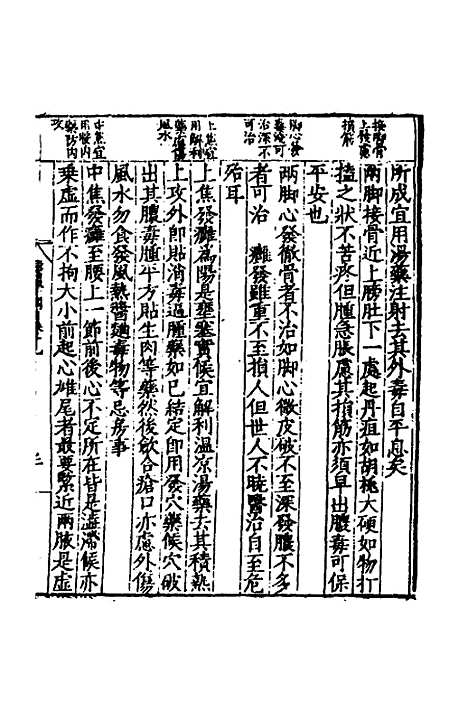 所成宜用湯藥注射去其外毒自平息矣
接脚骨
上核慮
損筋
兩脚接骨近上膀肚下一處起丹疽如胡桃大硬如物打
搕之狀不苦疼但腫急脹慮其損筋亦須早出膿毒可保
平安也
脚心發
毒淺可
治深不
可治
兩脚心發徹骨者不治如脚心微皮破不至深發膿不多
者可治 癰發雖重不至損人但世人不曉醫治自至危
殆耳
上焦宜
用解利
藥治傷
風水
上焦發癰為陽是壅盛實候宜解利溫涼湯藥去其積熱
上攻外即貼消毒退腫藥如已結定即用發穴藥候穴破
出其膿毒腫平方貼生肉等藥然後歛合瘡口亦慮外傷
風水勿食發風熱醬麵毒物等忌房事
中焦宜
用發內
藥防內
攻
中焦發癰至腰上一節前後心不定所在皆是虛滯候亦
乘虛而作不拘大小前起心雄尾者最要緊近兩脇是虛